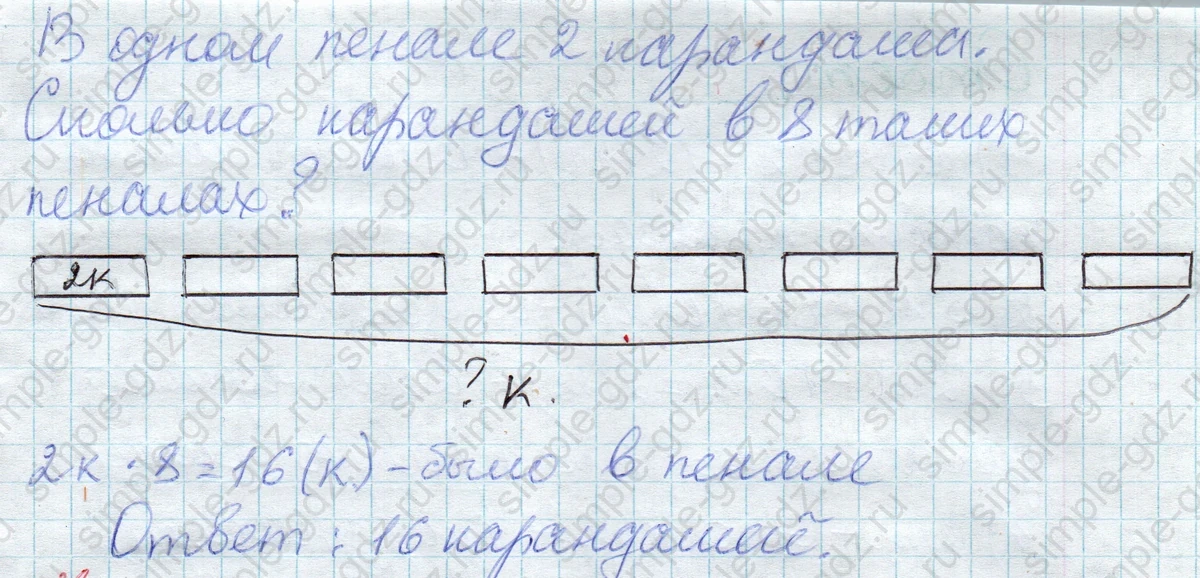 В одном пенале 2 карандаша.
Сколько карандашей в 8 таких
пеналах?
2к
? к.
2к · 8 = 16 (к) - было в пенале
Ответ: 16 карандашей.
simple-gdz.ru